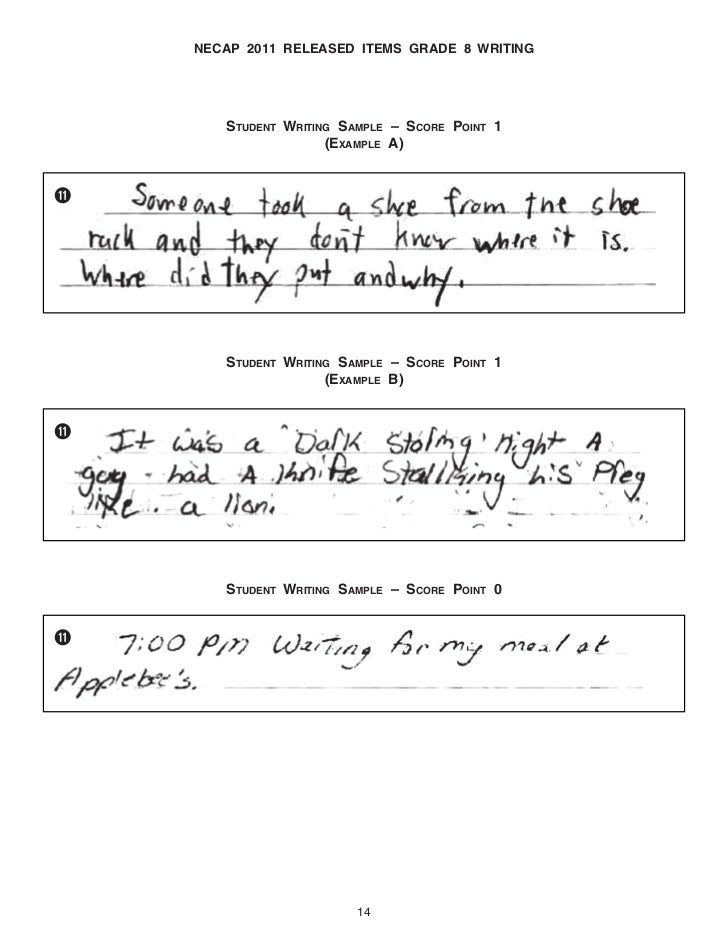 NECAP 2011 RELEASED ITEMS GRADE 8 WRITING
STUDENT WRITING SAMPLE – SCORE POINT 1
(EXAMPLE A)
11
Someone took a shoe from the shoe
rack and they don't know where it is.
Where did they put and why.
STUDENT WRITING SAMPLE – SCORE POINT 1
(EXAMPLE B)
11
It was a Dark Stolmg night A
guy had A knife Stallking his Preg
like a lion.
STUDENT WRITING SAMPLE – SCORE POINT 0
11
7:00 PM Waiting for my meal at
Applebee's.
14